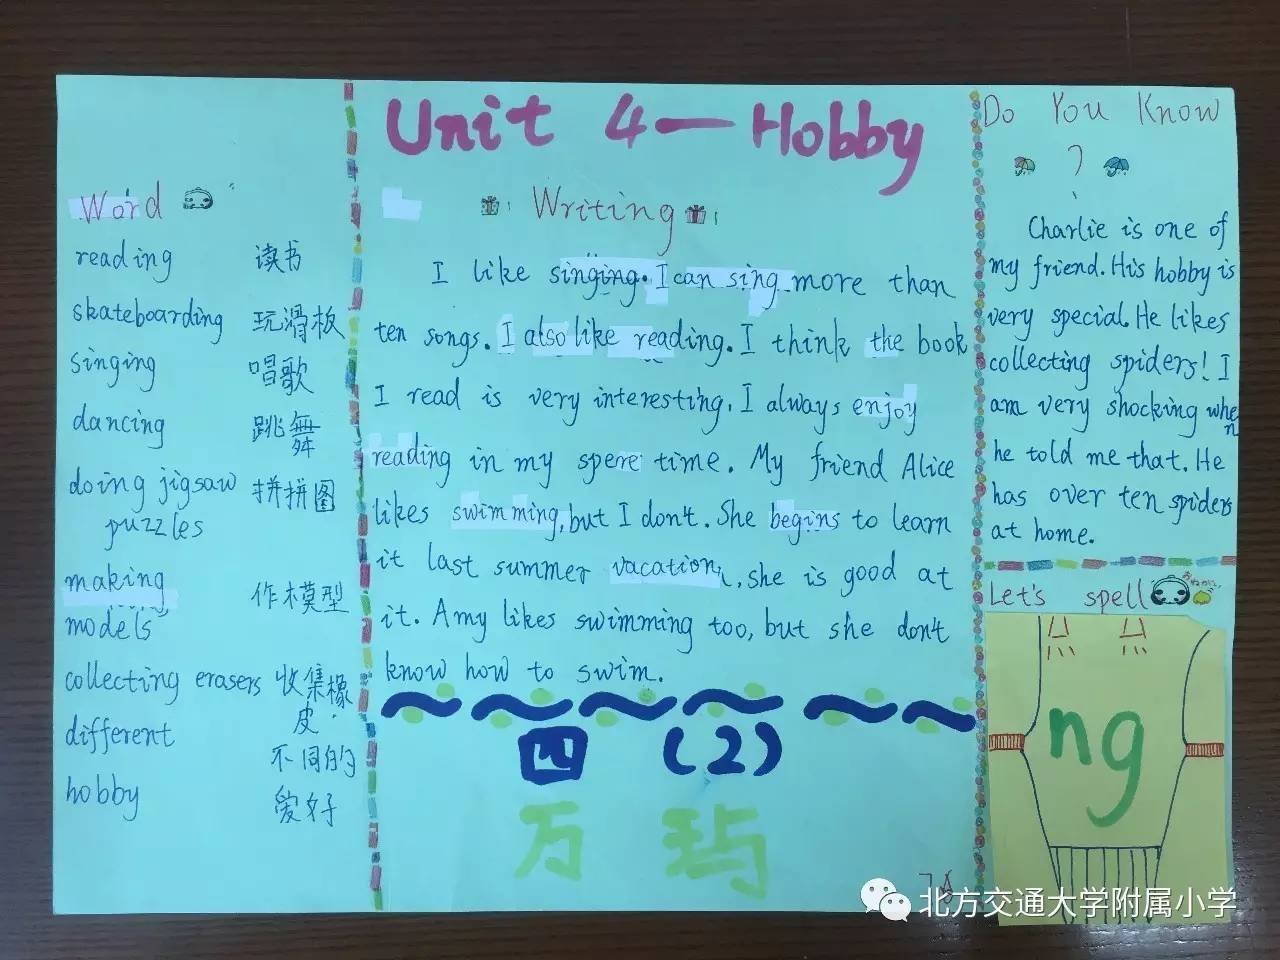 Unit 4—Hobby
Word
reading 读书
skateboarding 玩滑板
singing 唱歌
dancing 跳舞
doing jigsaw 拼拼图
puzzles
making 作模型
models
collecting erasers 收集橡
皮
different 不同的
hobby 爱好
Writing
I like singing. I can sing more than
ten songs. I also like reading. I think the book
I read is very interesting. I always enjoy
reading in my spere time. My friend Alice
likes swimming, but I don't. She begins to learn
it last summer vacation, she is good at
it. Amy likes swimming too, but she don't
know how to swim.
四 (2)
万
Do You Know
?
Charlie is one of
my friend. His hobby is
very special. He likes
collecting spiders! I
am very shocking when
he told me that. He
has over ten spiders
at home.
Let's spell
ng
北方交通大学附属小学